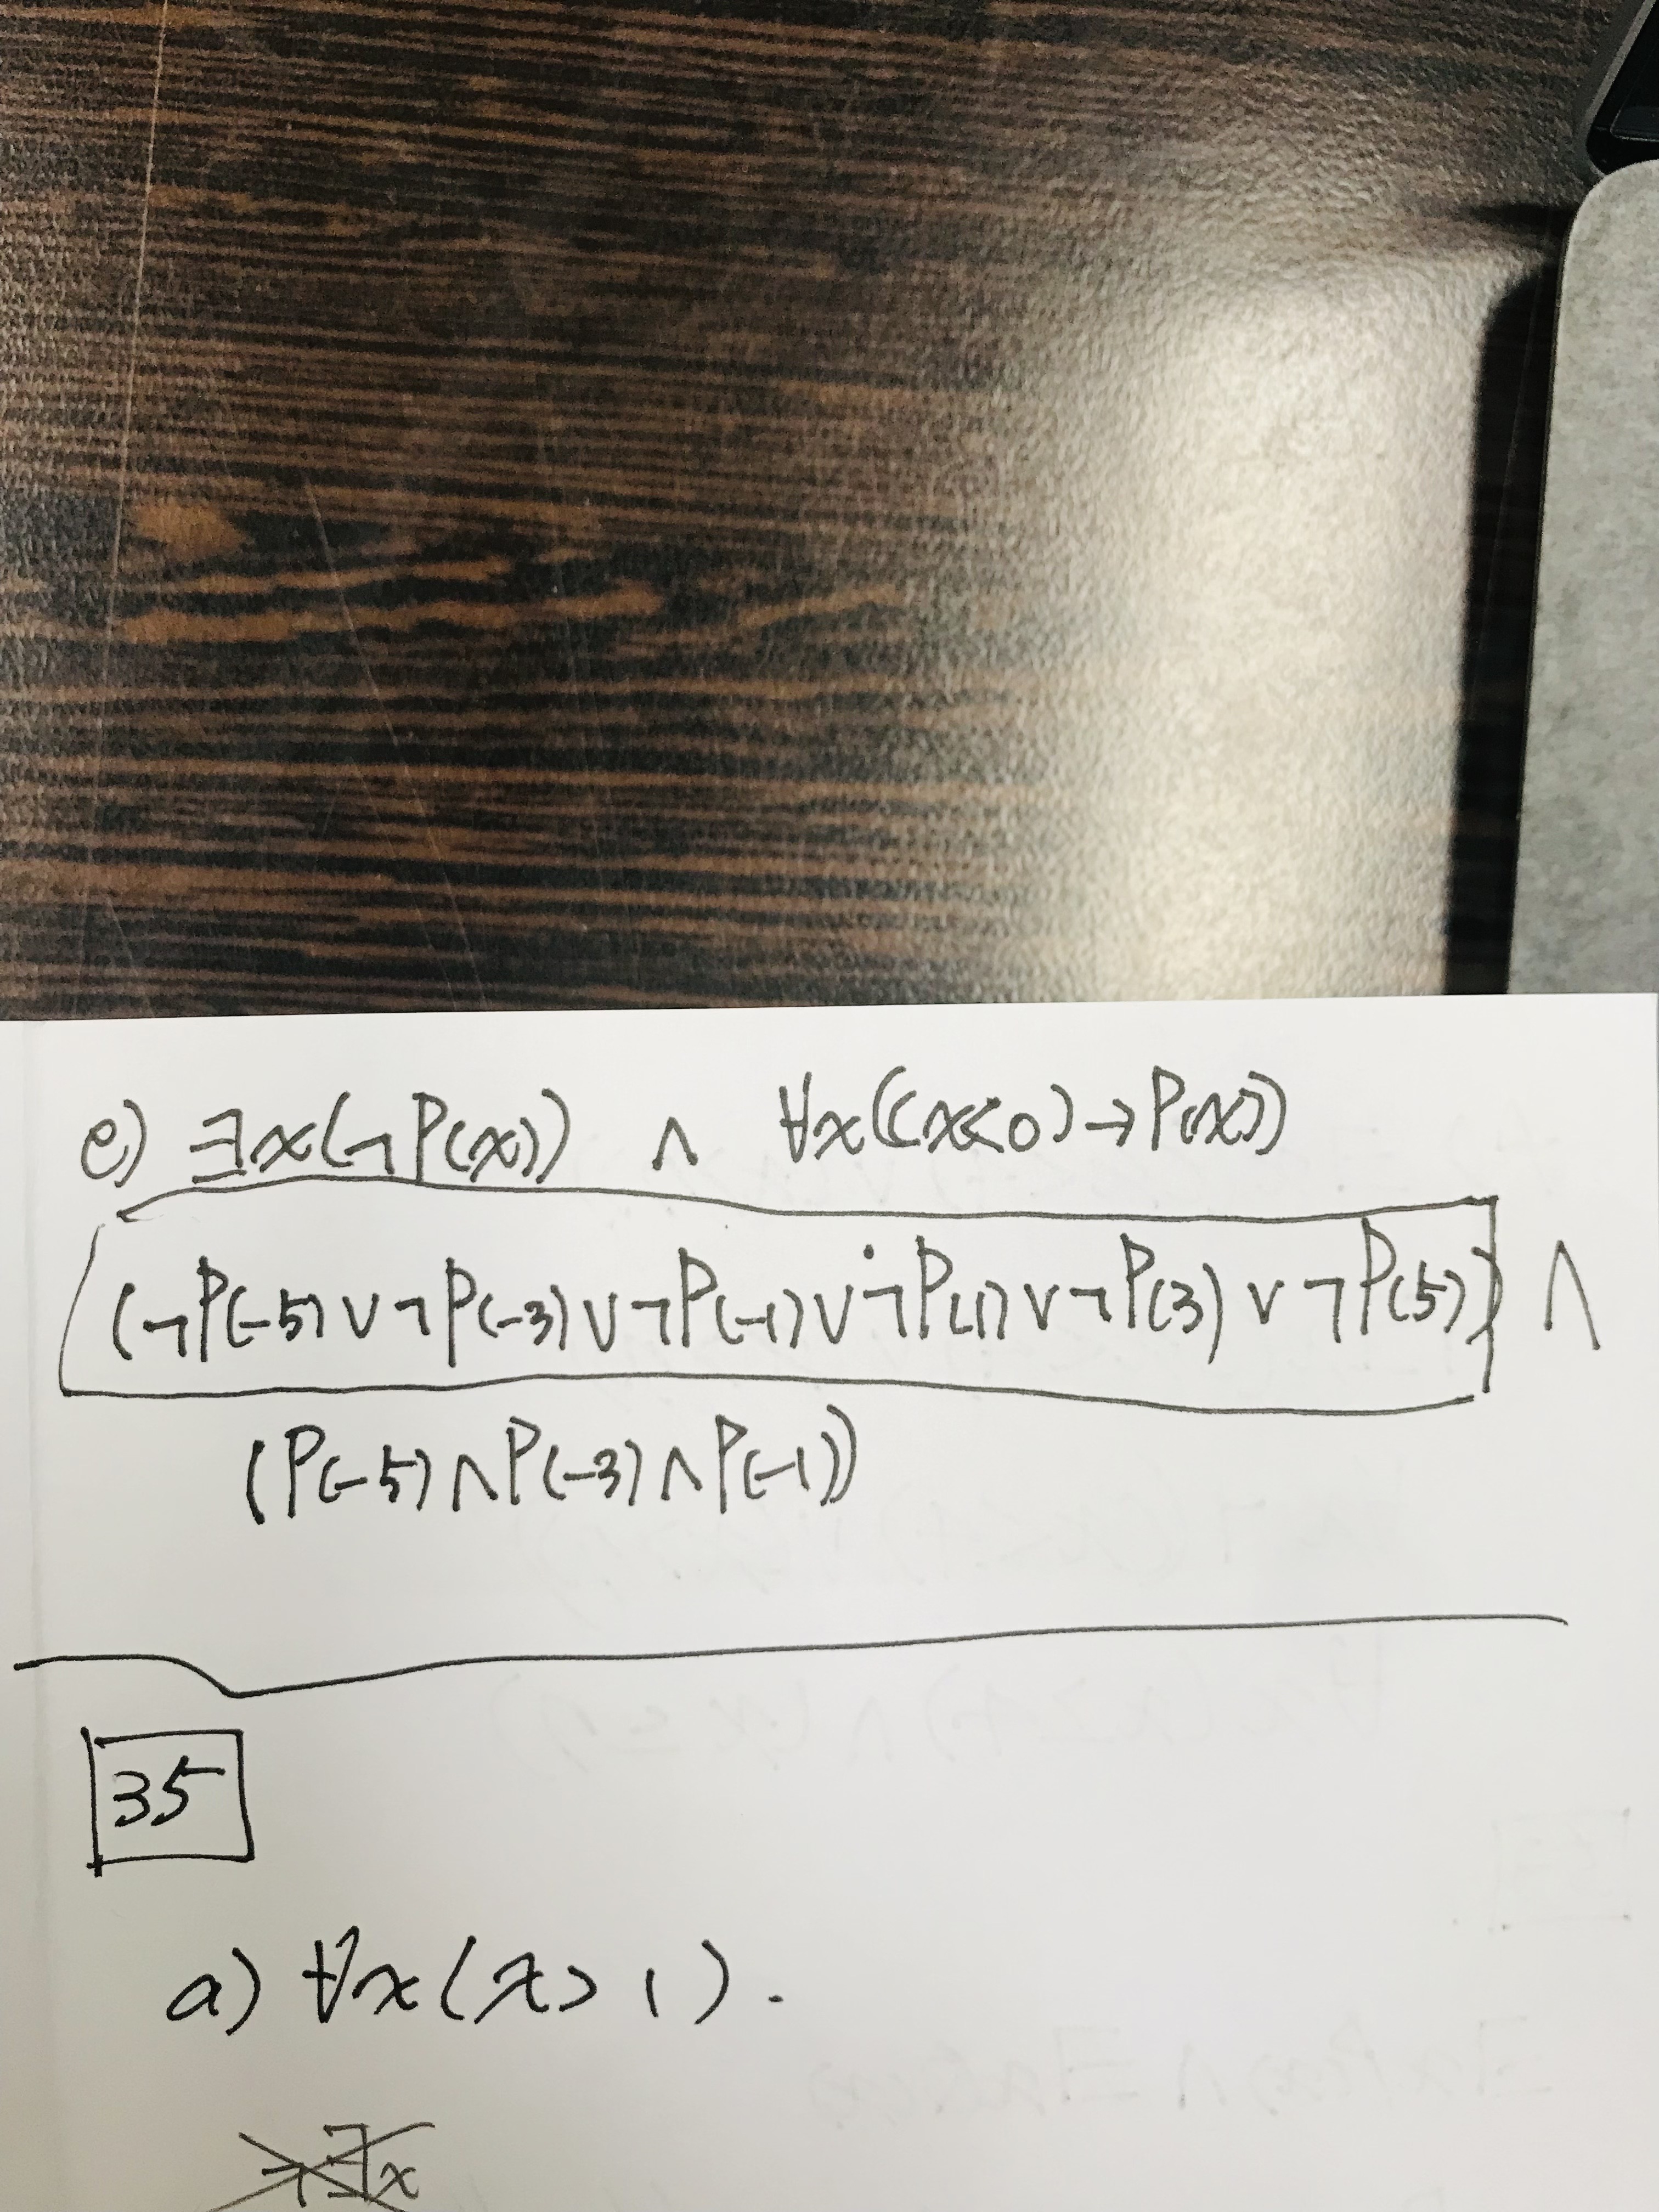 e) ∃x(¬P(x)) ∧ ∀x((x<0)→P(x))
(¬P(-5)∨¬P(-3)∨¬P(-1)∨¬P(1)∨¬P(3)∨¬P(5)) ∧
(P(-5)∧P(-3)∧P(-1))
35
a) ∀x(x>1).